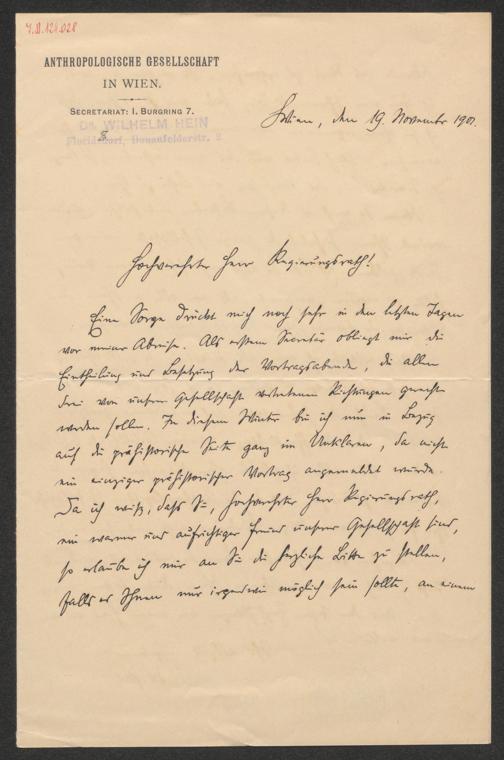 ANTHROPOLOGISCHE GESELLSCHAFT
IN WIEN.
SECRETARIAT: I. BURGRING 7.
DR. WILHELM HEIN
Floridsdorf, Donaufelderstr.
Wien, den 19. November 1901.
Hochverehrter Herr Regierungsrath!
Eine Sorge drückt mich noch sehr in den letzten Tagen
vor meiner Abreise. Als erstem Secretär obliegt mir die
Eintheilung und Besetzung der Vortragsabende, die allen
drei von unserer Gesellschaft vertretenen Richtungen gerecht
werden sollen. In diesem Winter bin ich nun in Bezug
auf die prähistorische Seite ganz im Unklaren, da nicht
ein einziger prähistorischer Vortrag angemeldet wurde.
Da ich weiß, dass Sie, hochverehrter Herr Regierungsrath,
ein warmer und aufrichtiger Freund unserer Gesellschaft sind,
so erlaube ich mir an Sie die herzliche Bitte zu stellen,
falls es Ihnen nur irgendwie möglich sein sollte, an einem